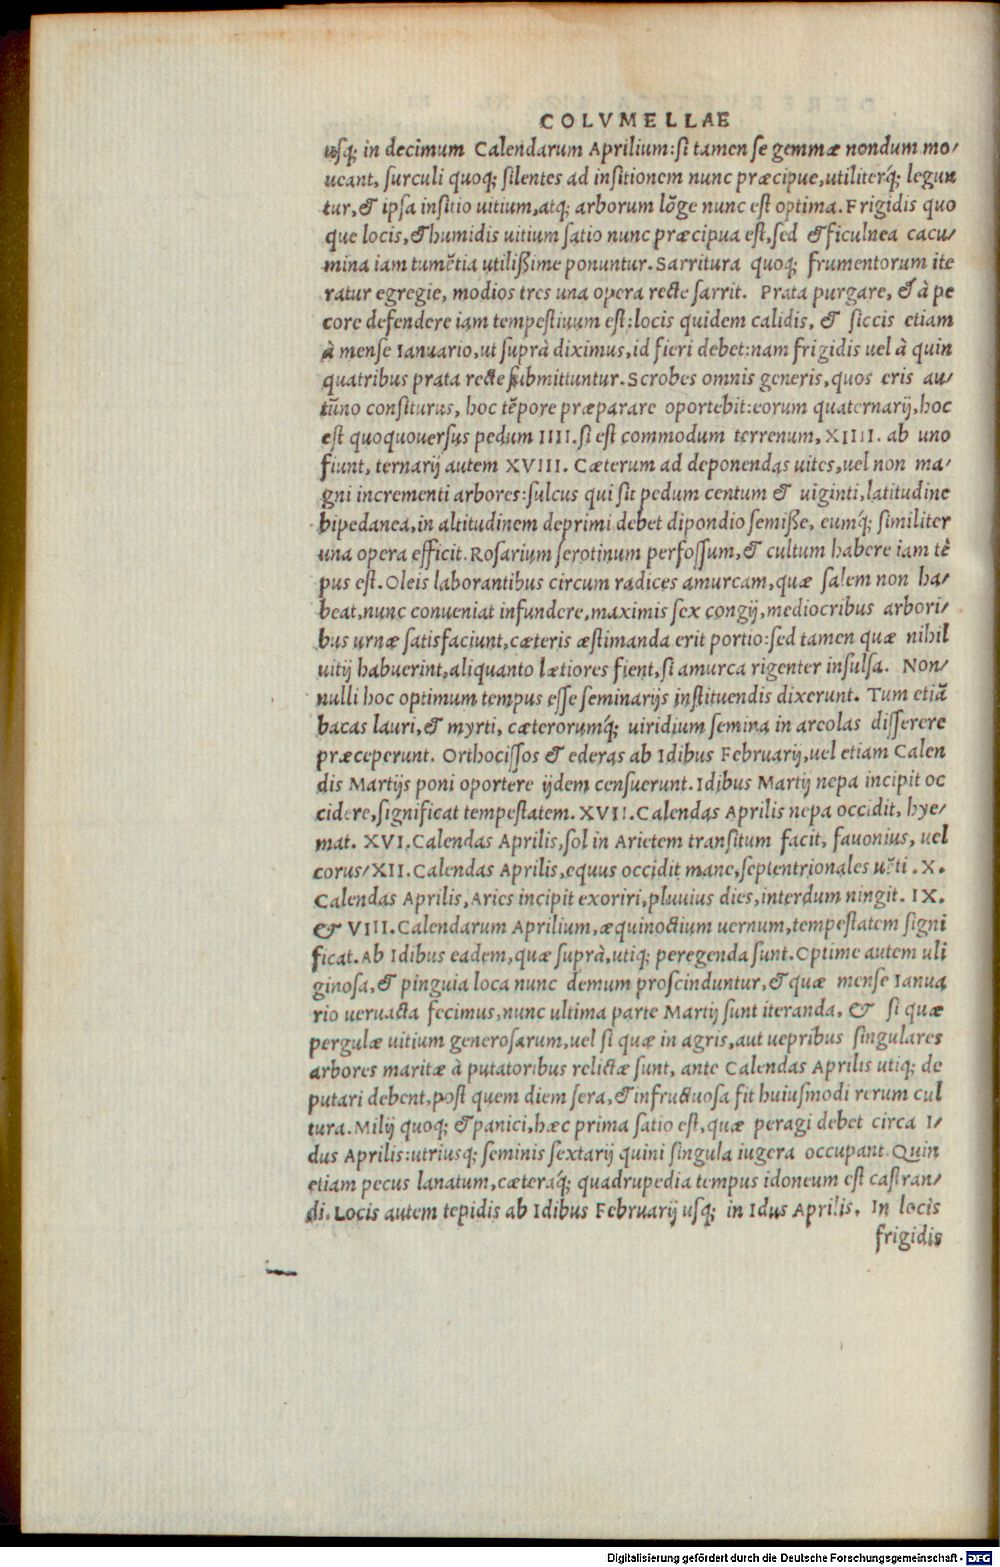 COLVMELLAE
usq; in decimum Calendarum Aprilium: si tamen se gemmæ nondum mo/
ueant, surculi quoq; silentes ad insitionem nunc præcipue, utiliterq́; legun
tur, & ipsa insitio uitium, atq; arborum lõge nunc est optima. Frigidis quo
que locis, & humidis uitium satio nunc præcipua est, sed & ficulnea cacu/
mina iam tumẽtia utilißime ponuntur. Sarritura quoq; frumentorum ite
ratur egregie, modios tres una opera recte sarrit. Prata purgare, & à pe
core defendere iam tempestiuum est: locis quidem calidis, & siccis etiam
à mense Ianuario, ut suprà diximus, id fieri debet: nam frigidis uel à quin
quatribus prata recte submittuntur. Scrobes omnis generis, quos eris au/
tũno consiturus, hoc tẽpore præparare oportebit: eorum quaternarij, hoc
est quoquouersus pedum IIII. si est commodum terrenum, XIIII. ab uno
fiunt, ternarij autem XVIII. Cæterum ad deponendas uites, uel non ma/
gni incrementi arbores: sulcus qui sit pedum centum & uiginti, latitudine
bipedanea, in altitudinem deprimi debet dipondio semiße, eumq́; similiter
una opera efficit. Rosarium serotinum perfossum, & cultum habere iam tẽ
pus est. Oleis laborantibus circum radices amurcam, quæ salem non ha/
beat, nunc conueniat infundere, maximis sex congij, mediocribus arbori/
bus urnæ satisfaciunt, cæteris æstimanda erit portio: sed tamen quæ nihil
uitij habuerint, aliquanto lætiores fient, si amurca rigenter insulsa. Non/
nulli hoc optimum tempus esse seminarijs instituendis dixerunt. Tum etiã
bacas lauri, & myrti, cæterorumq́; uiridium semina in areolas disserere
præceperunt. Orthocissos & ederas ab Idibus Februarij, uel etiam Calen
dis Martijs poni oportere ijdem censuerunt. Idibus Martij nepa incipit oc
cidere, significat tempestatem. XVII. Calendas Aprilis nepa occidit, hye/
mat. XVI. Calendas Aprilis, sol in Arietem transitum facit, fauonius, uel
corus/XII. Calendas Aprilis, equus occidit mane, septentrionales uẽti. X.
Calendas Aprilis, Aries incipit exoriri, pluuius dies, interdum ningit. IX.
& VIII. Calendarum Aprilium, æquinoctium uernum, tempestatem signi
ficat. Ab Idibus eadem, quæ suprà, utiq; peregenda sunt. Optime autem uli
ginosa, & pinguia loca nunc demum proscinduntur, & quæ mense Ianua
rio ueruacta fecimus, nunc ultima parte Martij sunt iteranda, & si quæ
pergulæ uitium generosarum, uel si quæ in agris, aut uepribus singulares
arbores maritæ à putatoribus relictæ sunt, ante Calendas Aprilis utiq; de
putari debent, post quem diem sera, & infructuosa fit huiusmodi rerum cul
tura. Milij quoq; & panici, hæc prima satio est, quæ peragi debet circa I/
dus Aprilis: utriusq; seminis sextarij quini singula iugera occupant. Quin
etiam pecus lanatum, cæteraq́; quadrupedia tempus idoneum est castran/
di. Locis autem tepidis ab Idibus Februarij usq; in Idus Aprilis. In locis
frigidis
Digitalisierung gefördert durch die Deutsche Forschungsgemeinschaft - DFG